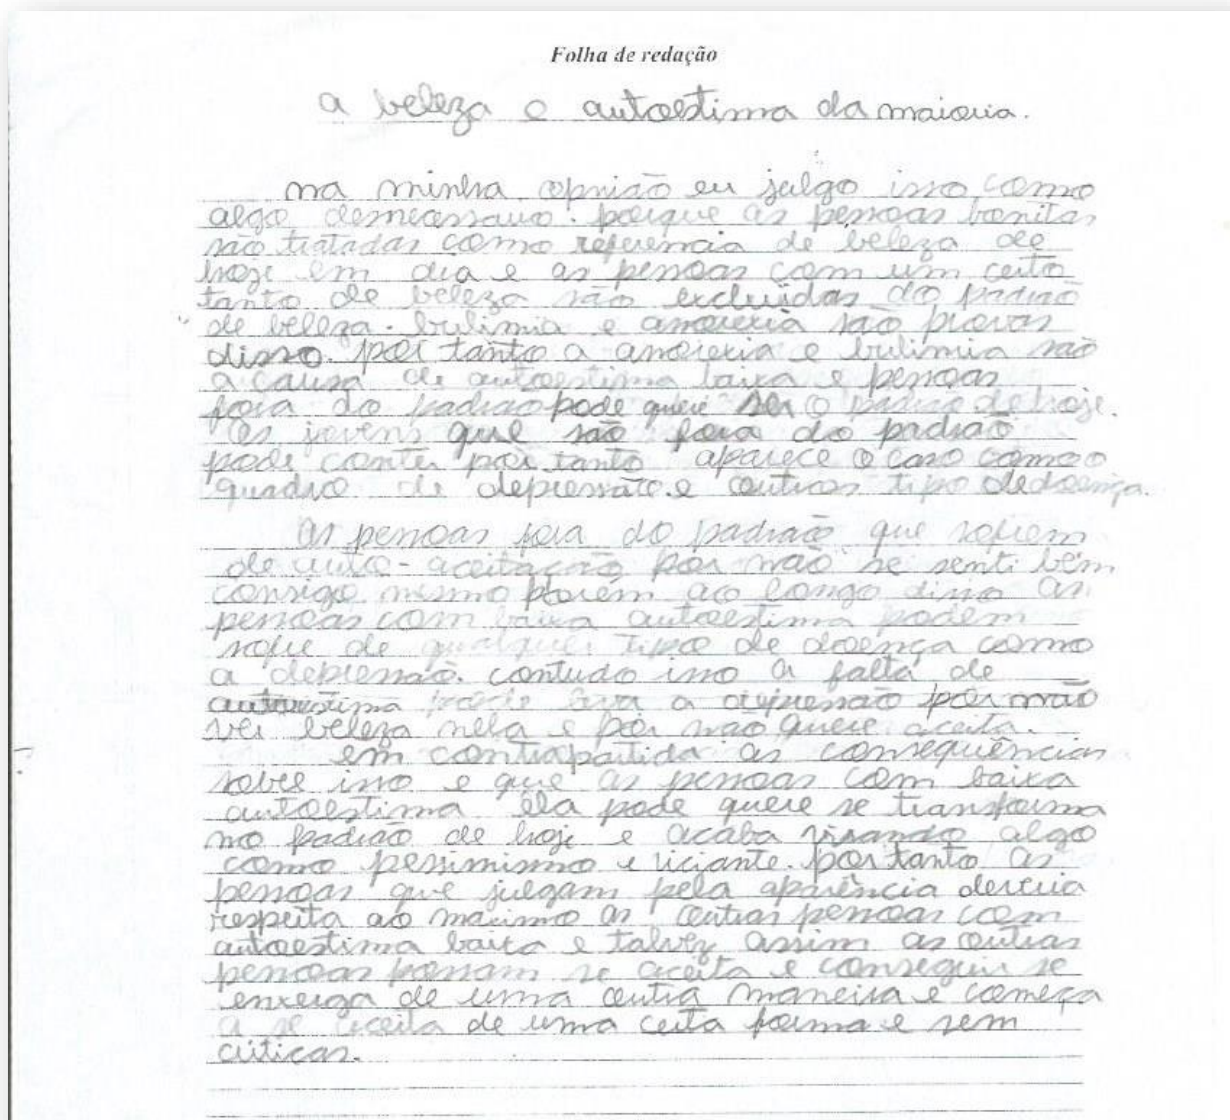 Folha de redação
a beleza e autoestima da maioria.
na minha opnião eu julgo isso como
algo desnecessario. porque as pessoas bonitas
são tratadas como referencia de beleza de
hoje em dia e as pessoas com um certo
tanto de beleza são excluidas do padrão
de beleza. bulimia e anorexia são provas
disso. por tanto a anorexia e bulimia são
a causa de autoestima baixa e pessoas
fora do padrão pode quere ser o padrão de hoje.
os jovens que são fora do padrão
pode conter por tanto aparece o caso como o
quadro de depressão e outros tipo de doença.
As pessoas fora do padrão que sofrem
de auto-aceitação por não se senti bem
consigo mesmo porem ao longo disso as
pessoas com baixa autoestima podem
sofre de qualquer tipo de doença como
a depressão. contudo isso a falta de
autoestima pode a depressão por não
ver beleza nela e por não quere aceita.
em contrapartida as consequências
sobre isso e que as pessoas com baixa
autoestima ela pode quere se transforma
no padrão de hoje e acaba visando algo
como pessimismo e viciante. por tanto as
pessoas que julgam pela aparência deveria
respeita ao maximo as outras pessoas com
autoestima baixa e talvez assim as outras
pessoas possam se aceita e conseguir se
enxerga de uma outra maneira e começa
a se aceita de uma certa forma e sem
criticas.